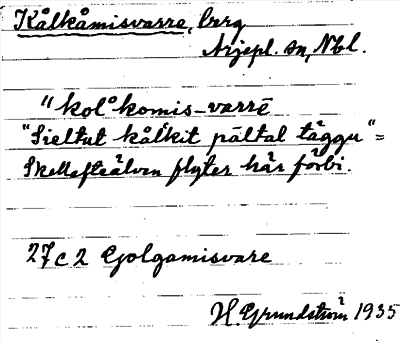 Kålkåmisvarre, berg
Arjepl. sn, Nbl.
"kol°komis-varrē
"Sieltut kålkit páltal tåggu" =
Skellefteälven flyter här förbi.
27c2 Golgamisvare
H. Grundström 1935